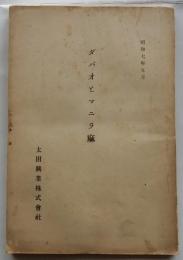 昭和七年五月
ダバオとマニラ麻
太田興業株式會社